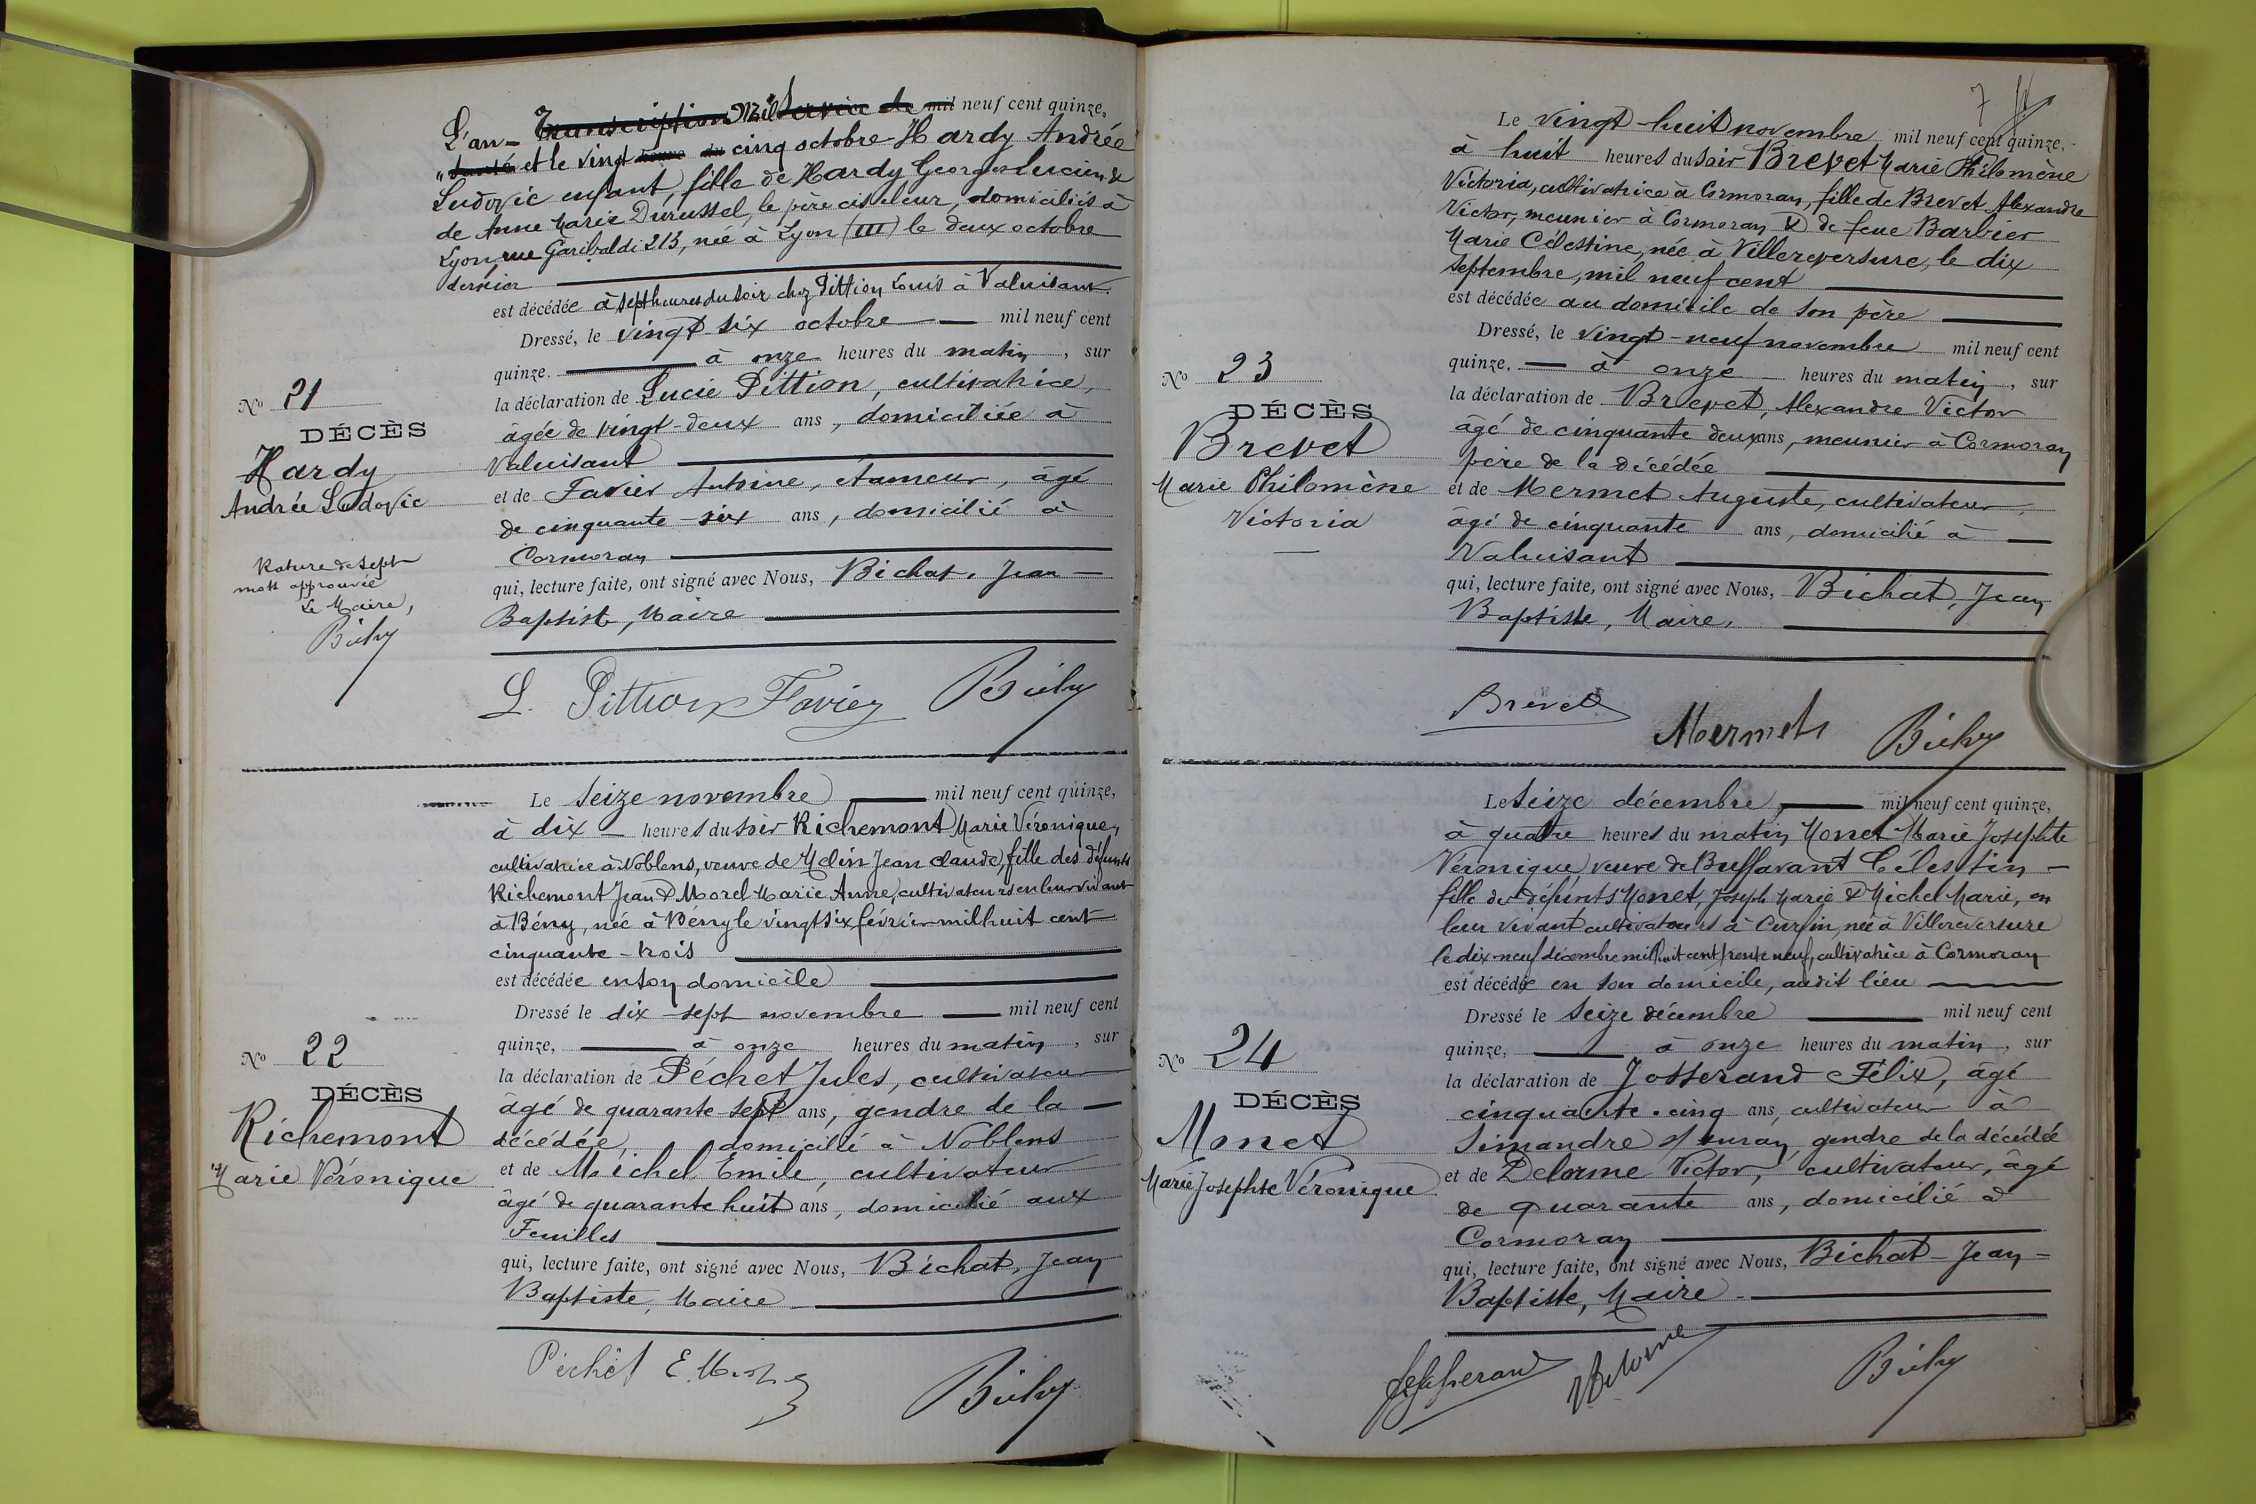 L'an - Transcription Mil Service de mil neuf cent quinze,
et le vingt cinq octobre Hardy Andrée
Ludovic enfant, fille de Hardy Georges Lucien &
de Anne Marie Durussel, le père ciseleur, domiciliés à
Lyon rue Garibaldi 213, née à Lyon (III) le deux octobre
dernier
est décédée à sept heures du soir chez Pittion Louis à Valuisant.
Dressé, le vingt six octobre mil neuf cent
quinze. à onze heures du matin, sur
la déclaration de Lucie Pittion, cultivatrice,
âgée de vingt-deux ans, domiciliée à
Valuisant
et de Favier Antoine, étameur, âgé
de cinquante-six ans, domicilié à
Cormoran
qui, lecture faite, ont signé avec Nous, Bichat, Jean
Baptiste, Maire
L. Pittion Favier
No 21
DÉCÈS
Hardy
Andrée Ludovic
Rature de sept
mots approuvée
Le Maire,
Le seize novembre mil neuf cent quinze,
à dix heures du soir Richemont Marie Véronique,
cultivatrice à Noblens, veuve de Melin Jean Claude, fille des défunts
Richemont Jean & Morel Marie Anne, cultivateurs en leur vivant
à Bény, née à Bény le vingt six février mil huit cent
cinquante-trois
est décédée en son domicile
Dressé le dix-sept novembre mil neuf cent
quinze, à onze heures du matin, sur
la déclaration de Péchet Jules, cultivateur
âgé de quarante-sept ans, gendre de la
décédée, domicilié à Noblens
et de Michel Emile, cultivateur
âgé de quarante huit ans, domicilié aux
Feuilles
qui, lecture faite, ont signé avec Nous, Bichat, Jean
Baptiste, Maire
Péchet E.
No 22
DÉCÈS
Richemont
Marie Véronique
7
Le vingt-huit novembre mil neuf cent quinze,
à huit heures du soir Brevet Marie Philomène
Victoria, cultivatrice à Cormoran, fille de Brevet Alexandre
Victor, meunier à Cormoran & de feue Barbier
Marie Célestine, née à Villereversure, le dix
septembre, mil neuf cent
est décédée au domicile de son père
Dressé, le vingt-neuf novembre mil neuf cent
quinze, à onze heures du matin, sur
la déclaration de Brevet, Alexandre Victor
âgé de cinquante deux ans, meunier à Cormoran
père de la décédée
et de Mermet Auguste, cultivateur,
âgé de cinquante ans, domicilié à
Valuisant
qui, lecture faite, ont signé avec Nous, Bichat, Jean
Baptiste, Maire,
Brevet Mermet
No 23
DÉCÈS
Brevet
Marie Philomène
Victoria
Le seize décembre, mil neuf cent quinze,
à quatre heures du matin, Monet Marie Josephte
Véronique, veuve de Buffavant Célestin -
fille des défunts Monet, Joseph Marie & Michel Marie, en
leur vivant cultivateurs à Curfin, née à Villereversure
le dix-neuf décembre mil huit cent trente neuf, cultivatrice à Cormoran
est décédée en son domicile, audit lieu
Dressé le seize décembre mil neuf cent
quinze, à onze heures du matin, sur
la déclaration de Josserand Félix, âgé
cinquante-cinq ans, cultivateur à
Simandre s/ Suran, gendre de la décédée
et de Delorme Victor, cultivateur, âgé
de quarante ans, domicilié à
Cormoran
qui, lecture faite, ont signé avec Nous, Bichat - Jean -
Baptiste, Maire
Josserand Delorme
No 24
DÉCÈS
Monet
Marie Josephte Véronique